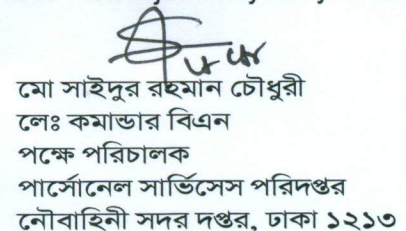 মো সাইদুর রহমান চৌধুরী
লেঃ কমান্ডার বিএন
পক্ষে পরিচালক
পার্সোনেল সার্ভিসেস পরিদপ্তর
নৌবাহিনী সদর দপ্তর, ঢাকা ১২১৩